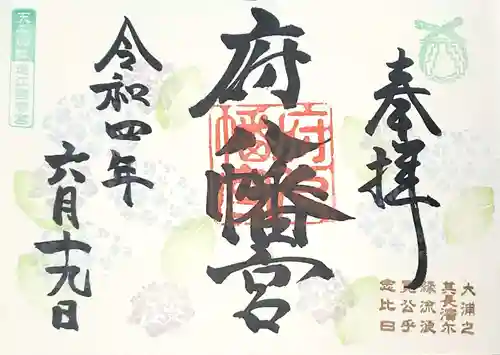 奉拝
府八幡宮
令和四年
六月十九日
大浦之
其長濱尓
縁流浪
見公乎
念比日